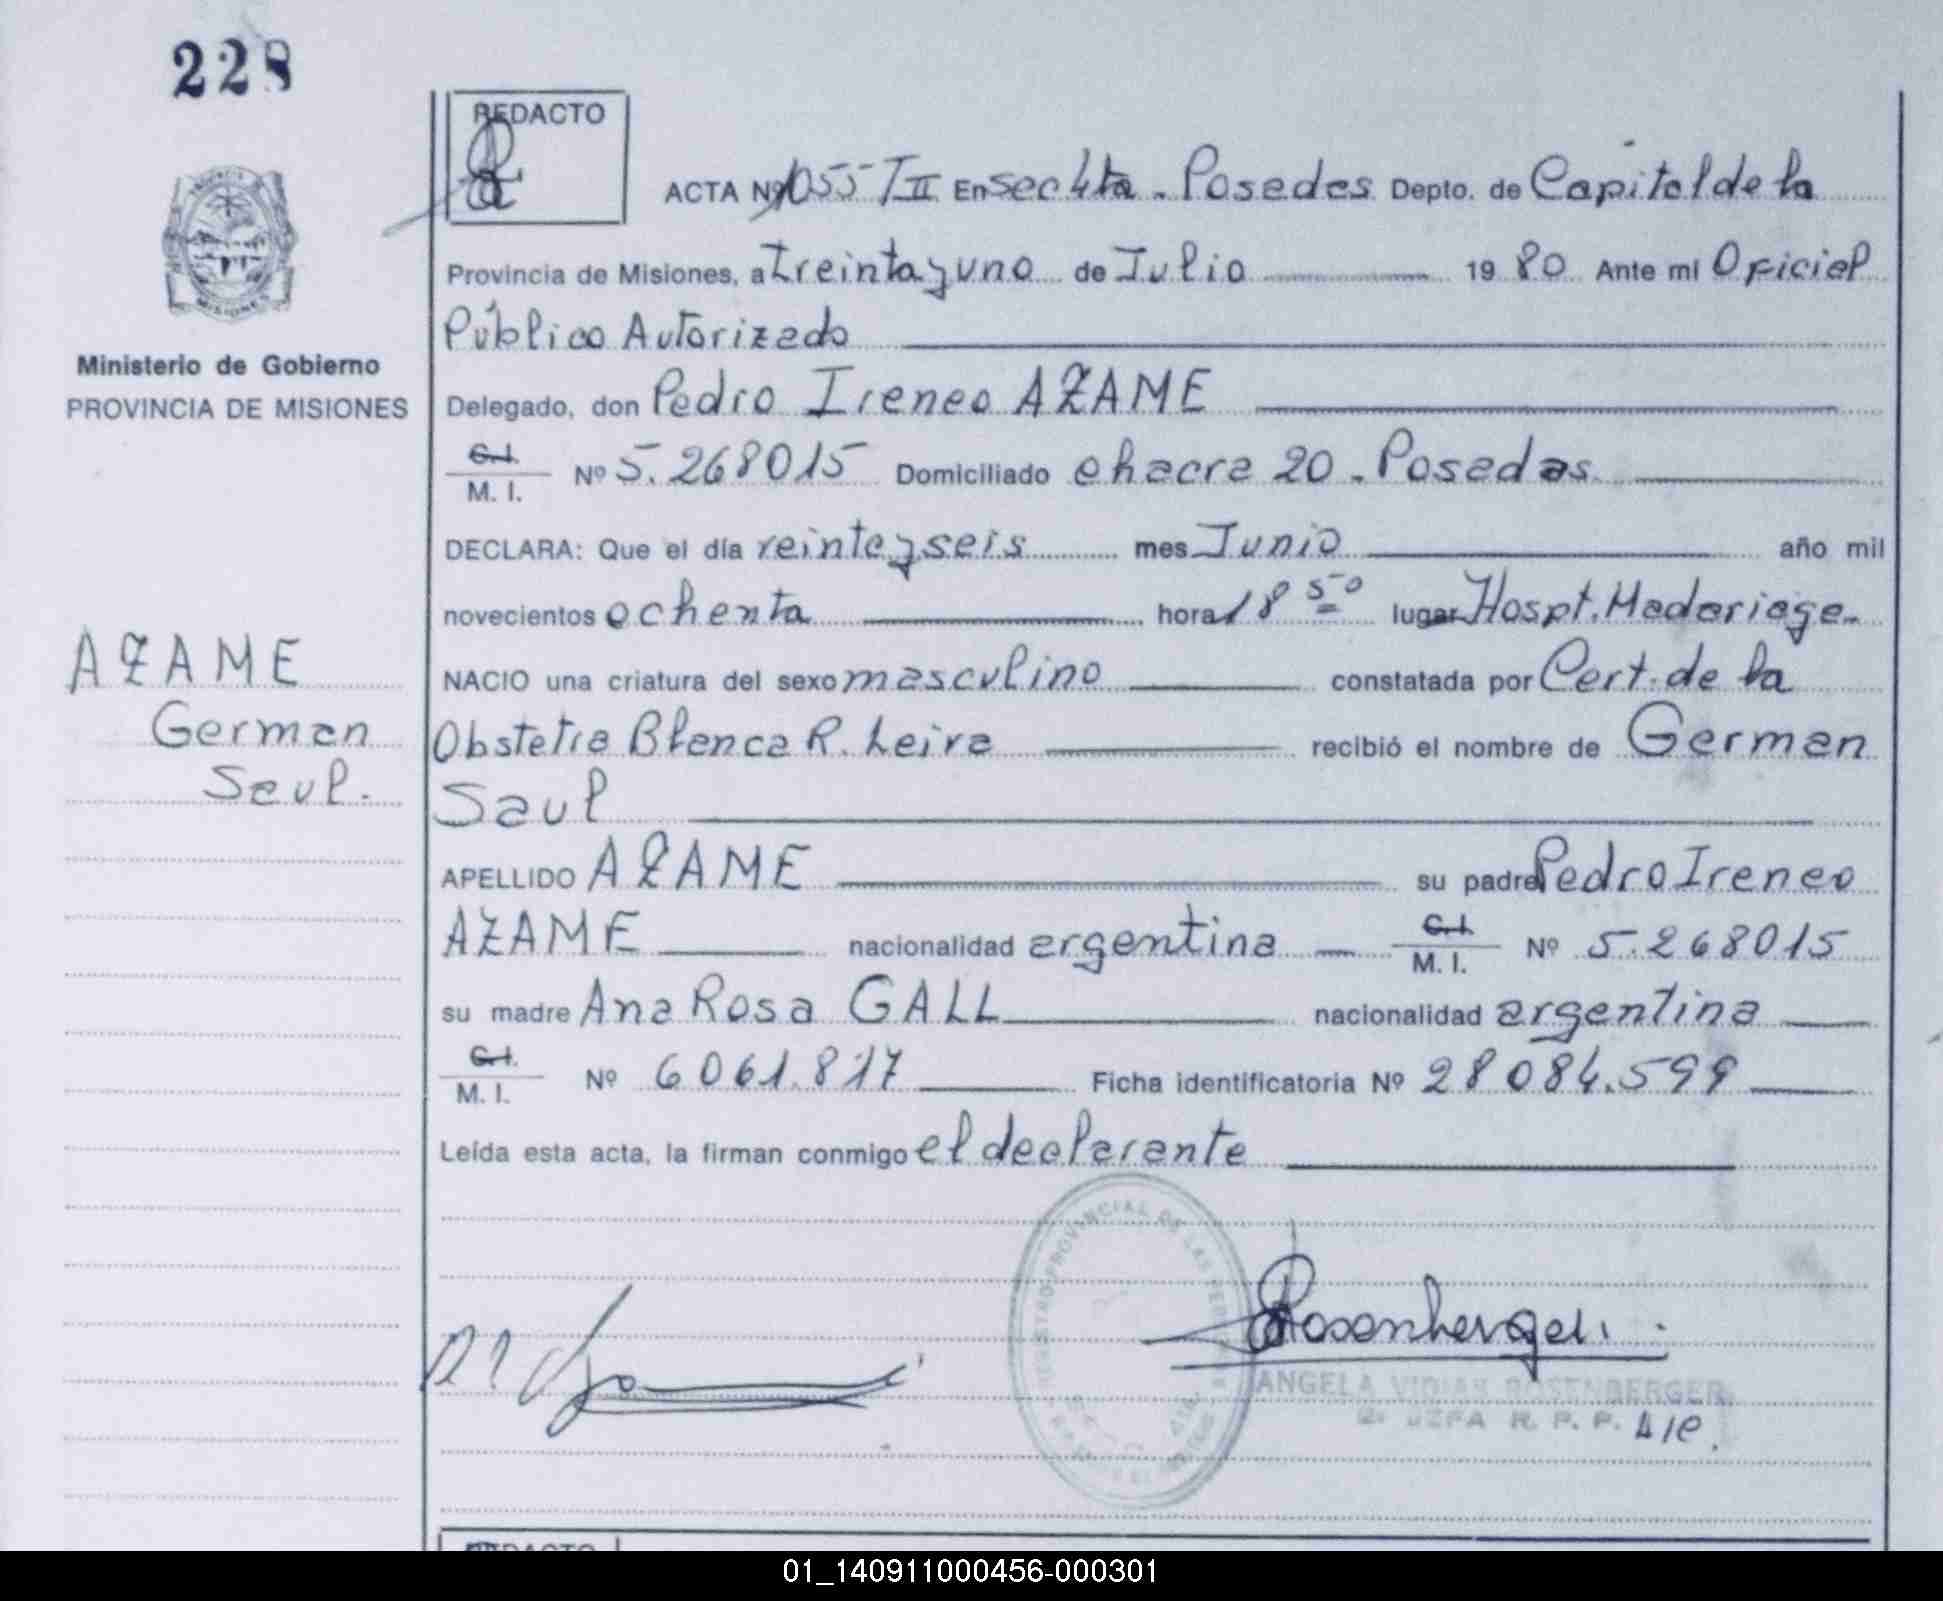 228
REDACTO
ACTA Nº 1055 T II En sec 4ta. Posadas Depto. de Capital de la
Provincia de Misiones, a treinta y uno de Julio 19 80 Ante mi Oficial
Público Autorizado
Ministerio de Gobierno
PROVINCIA DE MISIONES
Delegado, don Pedro Ireneo AZAME
C.I.
M. I. Nº 5.268015 Domiciliado chacra 20. Posadas
DECLARA: Que el día veinte y seis mes Junio año mil
novecientos ochenta hora 18 50 lugar Hospt. Madariaga.
AZAME
German
Saul.
NACIO una criatura del sexo masculino constatada por Cert. de la
Obstetra Blanca R. Leiva recibió el nombre de German
Saul
APELLIDO AZAME su padre Pedro Ireneo
AZAME nacionalidad argentina C.I. M. I. Nº 5.268015
su madre Ana Rosa GALL nacionalidad argentina
C.I.
M. I. Nº 6061.817 Ficha identificatoria Nº 28084.599
Leída esta acta, la firman conmigo el declarante
REGISTRO PROVINCIAL DE LAS PER
Rosenberger.
ANGELA ROSENBERGER
JEFA R. P. P. A/C.
REDACTO
01_140911000456-000301